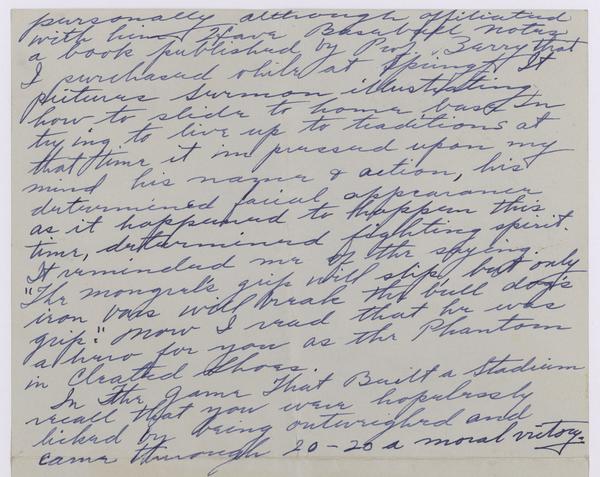 personally although affiliated
with him. I have Baseball notes
a book published by Prof. Berry that
I purchased while at Springf. It
pictures Surmon illustrating
how to slide to home base. In
trying to live up to traditions at
that time it impressed upon my
mind his name & action, his
determined facial appearance
as it happened to happen this
time, determined fighting spirit.
It reminded me of the saying
"The mongrel's grip will slip, but only
iron bars will break the bull dog's
grip." Now I read that he was
a hero for you as the Phantom
in Cleated Shoes.
In The Game That Built a Stadium
recall that you were hopelessly
licked by being outweighed and
came through 20-20 a moral victory-